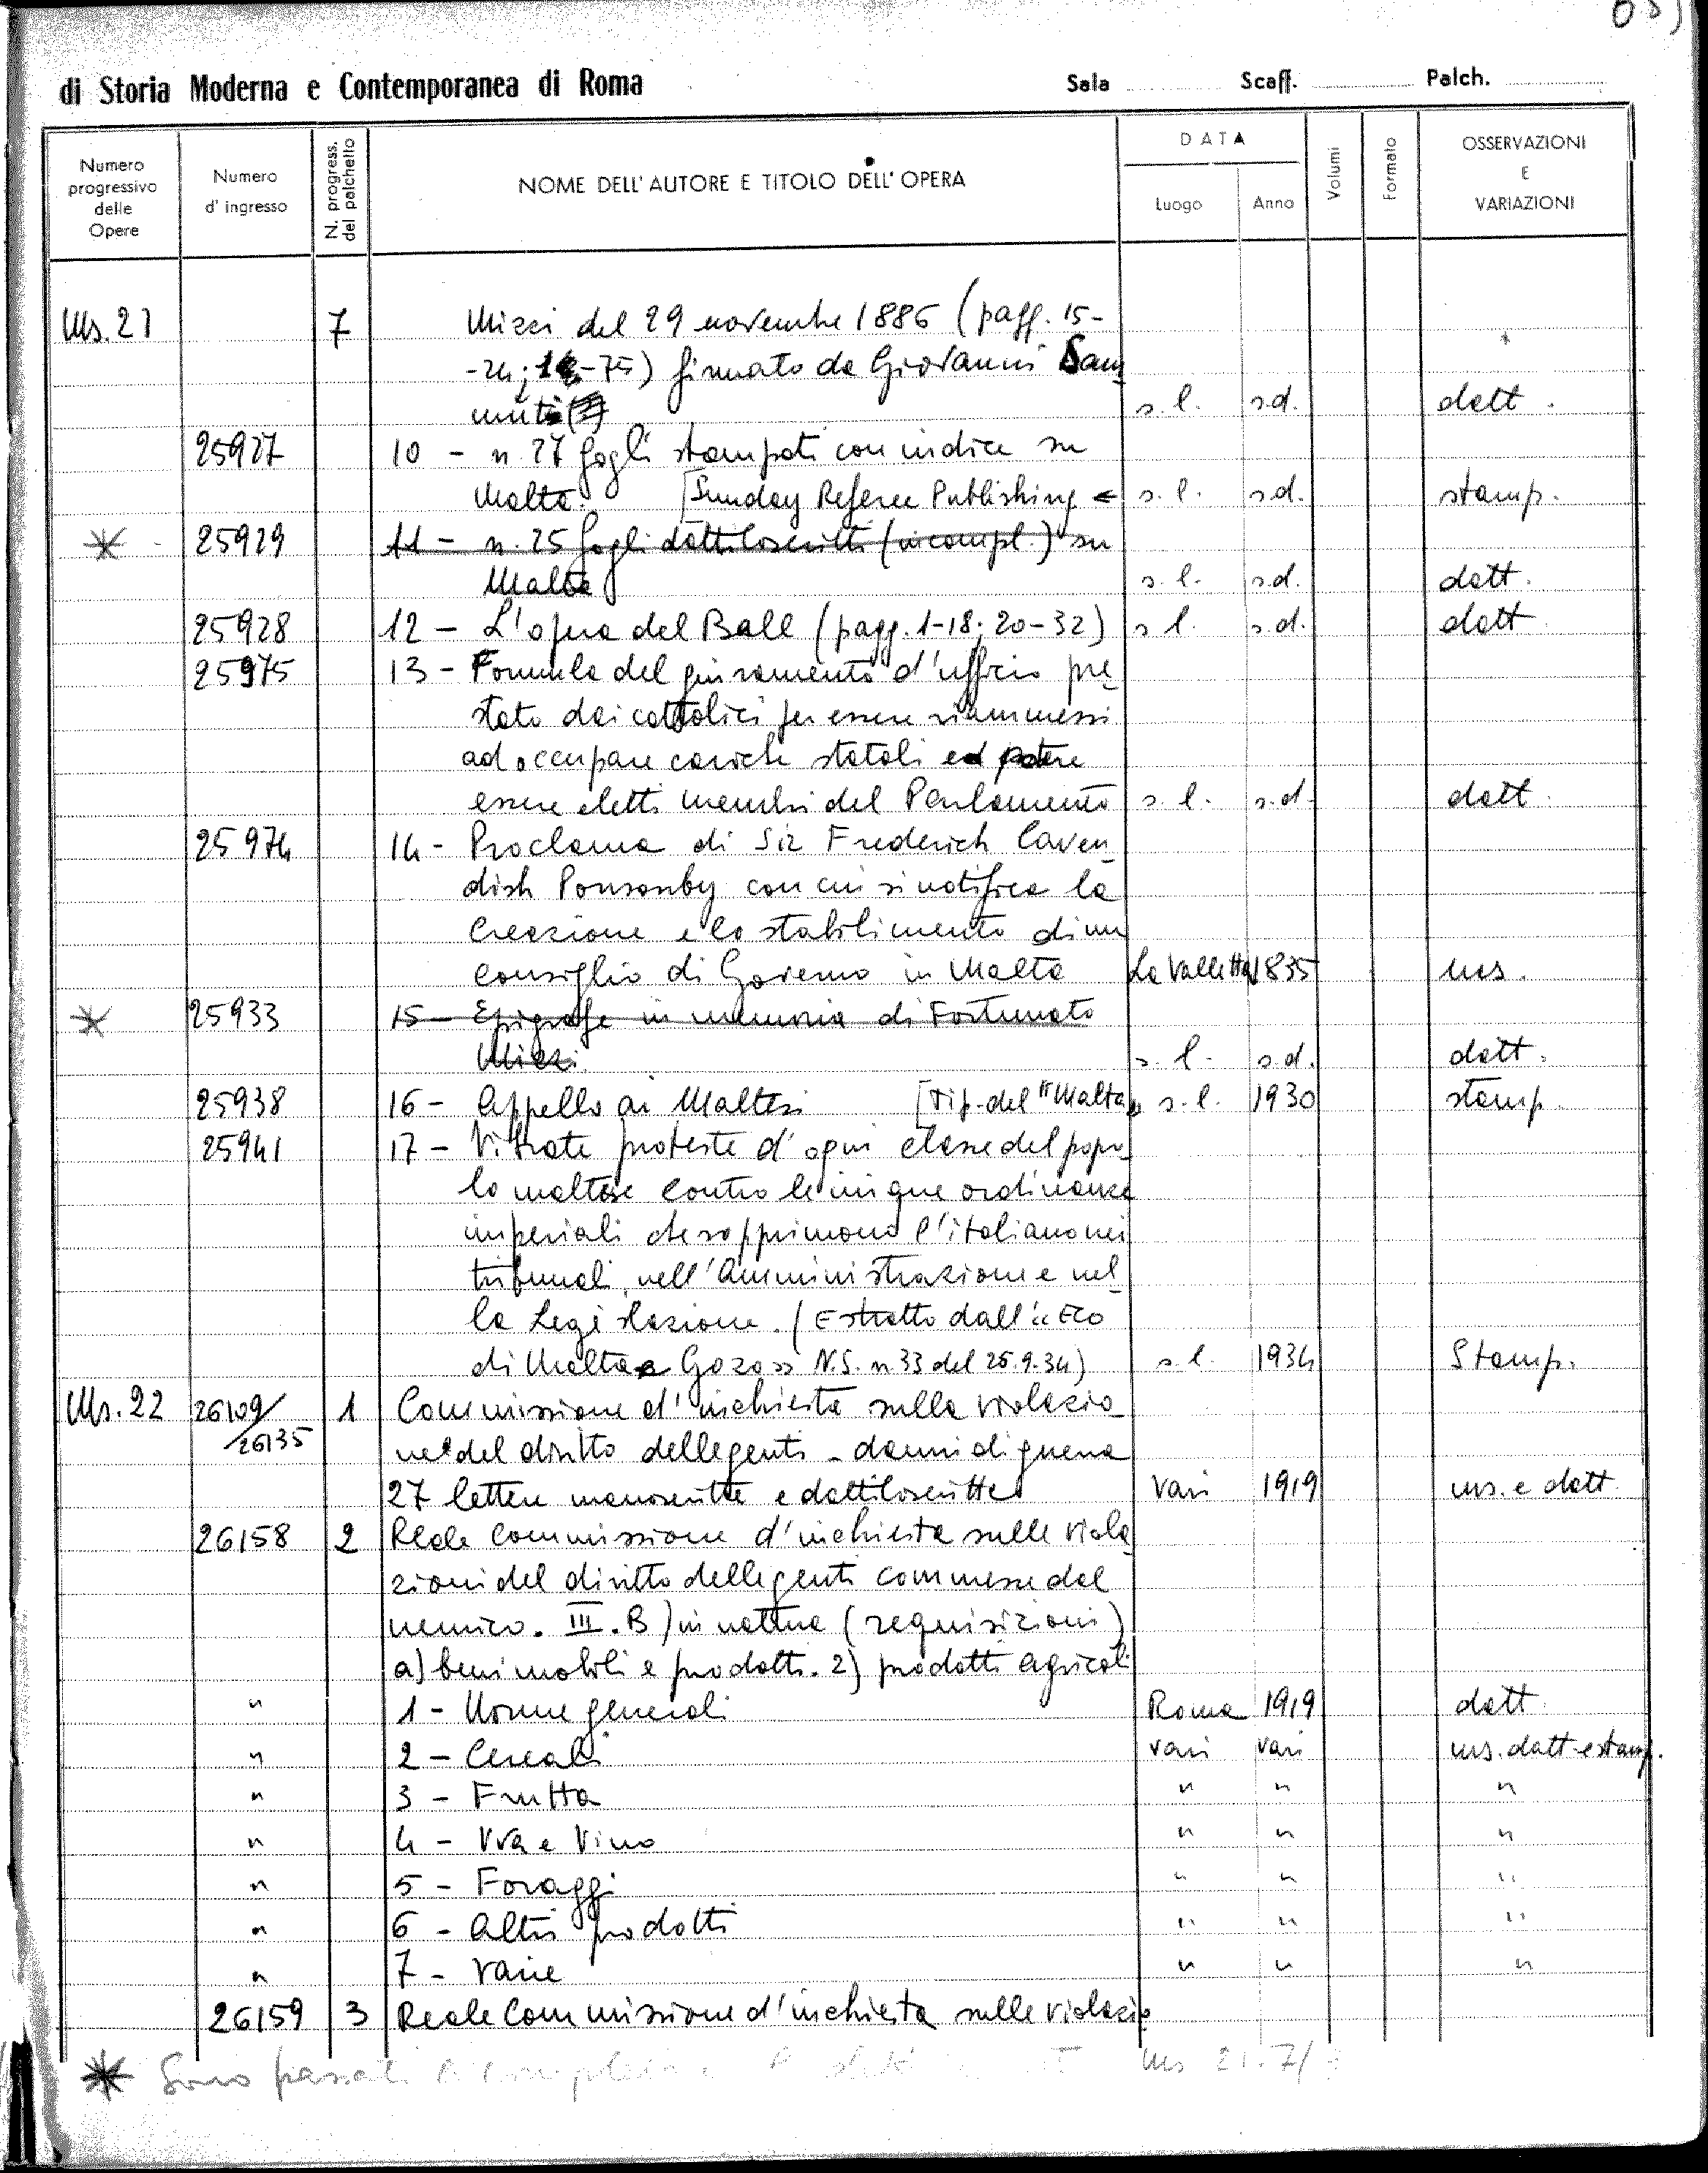 di Storia Moderna e Contemporanea di Roma Sala Scaff. Palch.
Numero progressivo delle Opere
Numero d' ingresso
N. progress. del palchetto
NOME DELL' AUTORE E TITOLO DELL' OPERA
DATA
Luogo Anno
Volumi
Formato
OSSERVAZIONI E VARIAZIONI
Ms. 21 7 Mizzi del 29 novembre 1886 (pagg. 15-
s. l. s.d. datt.
25927 10 - n. 27 fogli stampati con indice su
Malta. [Sunday Referee Publishing s. l. s.d. stamp.
* 25929 11 - n. 25 fogli dattiloscritti (incompl.) su
Malta s. l. s.d. datt.
25928 12 - L'opera del Ball (pagg. 1-18; 20-32) s l. s.d. datt
25975 13 - Formula del giuramento d'ufficio pre
stato dai cattolici per essere riammessi
ad occupare cariche statali ed potere
essere eletti membri del Parlamento s. l. s.d. datt.
25974 14 - Proclama di Sir Frederich Caven
dish Ponsonby con cui si notifica la
Creazione e lo stabilimento di un
consiglio di Governo in Malta La Valletta 1835 ms.
* 25933 15 - Epigrafe in memoria di Fortunato
Mizzi s. l. s.d. datt.
25938 16 - Appello ai Maltesi [Tip. del "Malta" s. l. 1930 stamp.
25941 17 - Vibrate proteste d'ogni classe del popo
lo maltese contro le inique ordinanze
imperiali che sopprimono l'italiano nei
tribunali, nell'Amministrazione e nel
la Legislazione. (Estratto dall'«Eco
di Malta e Gozo» N.S. n. 33 del 25.9.34) s. l. 1934 Stamp.
Ms. 22 26109/26135 1 Commissione d'inchiesta sulla violazio
ne del diritto delle genti - danni di guerra
27 lettere manoscritte e dattiloscritte Vari 1919 ms. e datt.
26158 2 Reale Commissione d'inchiesta sulle viola
zioni del diritto delle genti commesse dal
nemico. III. B) in natura (requisizioni)
a) beni mobili e prodotti. 2) prodotti agricoli
" 1 - Norme generali Roma 1919 datt.
" 2 - Cereali vari vari ms. datt. e stamp.
" 3 - Frutta " " "
" 4 - Uva e Vino " " "
" 5 - Foraggi " " "
" 6 - Altri prodotti " " "
" 7 - Varie " " "
26159 3 Reale Commissione d'inchiesta sulle violazio
* Sono passati Ms 21.7/